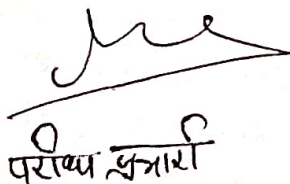 परीक्षा प्रभारी